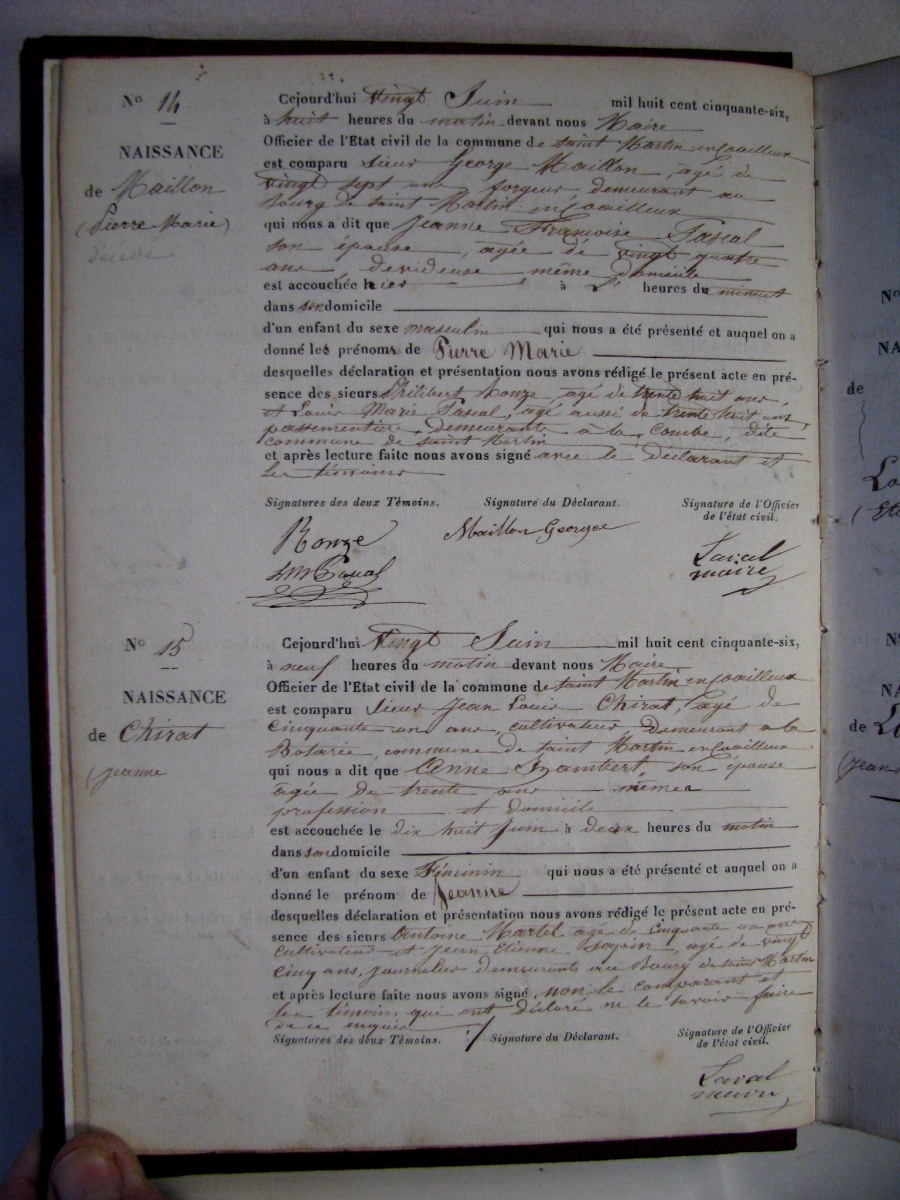 N° 14
NAISSANCE
de Maillon
(Pierre Marie)
décédé
Cejourd'hui Vingt Juin mil huit cent cinquante-six,
à huit heures du matin devant nous Maire
Officier de l'Etat civil de la commune de saint Martin en Coailleux
est comparu sieur George Maillon, agé de
vingt sept ans forgeur, demeurant au
bourg de saint Martin en Coailleux
qui nous a dit que Jeanne Françoise Pascal
son épouse, agée de vingt quatre
ans, devideuse même domicile
est accouchée hier à heures du minuit
dans son domicile
d'un enfant du sexe masculin qui nous a été présenté et auquel on a
donné les prénoms de Pierre Marie
desquelles déclaration et présentation nous avons rédigé le présent acte en pré-
sence des sieurs Philibert Ronze, agé de trente huit ans,
et Louis Marie Pascal, agé aussi de trente huit ans,
passementiers, demeurants à la Combe, dite
commune de saint Martin
et après lecture faite nous avons signé avec le déclarant et
les témoins
Signatures des deux Témoins. Signature du Déclarant. Signature de l'Officier
de l'état civil.
Ronze Maillon George Laval
maire
L M Pascal
N° 15
NAISSANCE
de Chirat
(jeanne
Cejourd'hui Vingt Juin mil huit cent cinquante-six,
à neuf heures du matin devant nous Maire
Officier de l'Etat civil de la commune de saint Martin en Coailleux
est comparu sieur Jean Louis Chirat, agé de
cinquante un ans, cultivateur demeurant a la
Botarie, commune de saint Martin en Coailleux
qui nous a dit que Anne son épouse
agée de trente ans mêmes
profession et domicile
est accouchée le dix huit juin à deux heures du matin
dans son domicile
d'un enfant du sexe Féminin qui nous a été présenté et auquel on a
donné le prénom de Jeanne
desquelles déclaration et présentation nous avons rédigé le présent acte en pré-
sence des sieurs Antoine Martel agé de cinquante un ans
cultivateur et Jean Etienne agé de vingt
cinq ans, journalier demeurants au Bourg de saint Martin
et après lecture faite nous avons signé, non le comparant et
les témoins qui ont déclaré ne le savoir faire
de ce enquis
Signatures des deux Témoins. Signature du Déclarant. Signature de l'Officier
de l'état civil.
Laval
maire
N°
NA
de
N°
NA
de
(jean